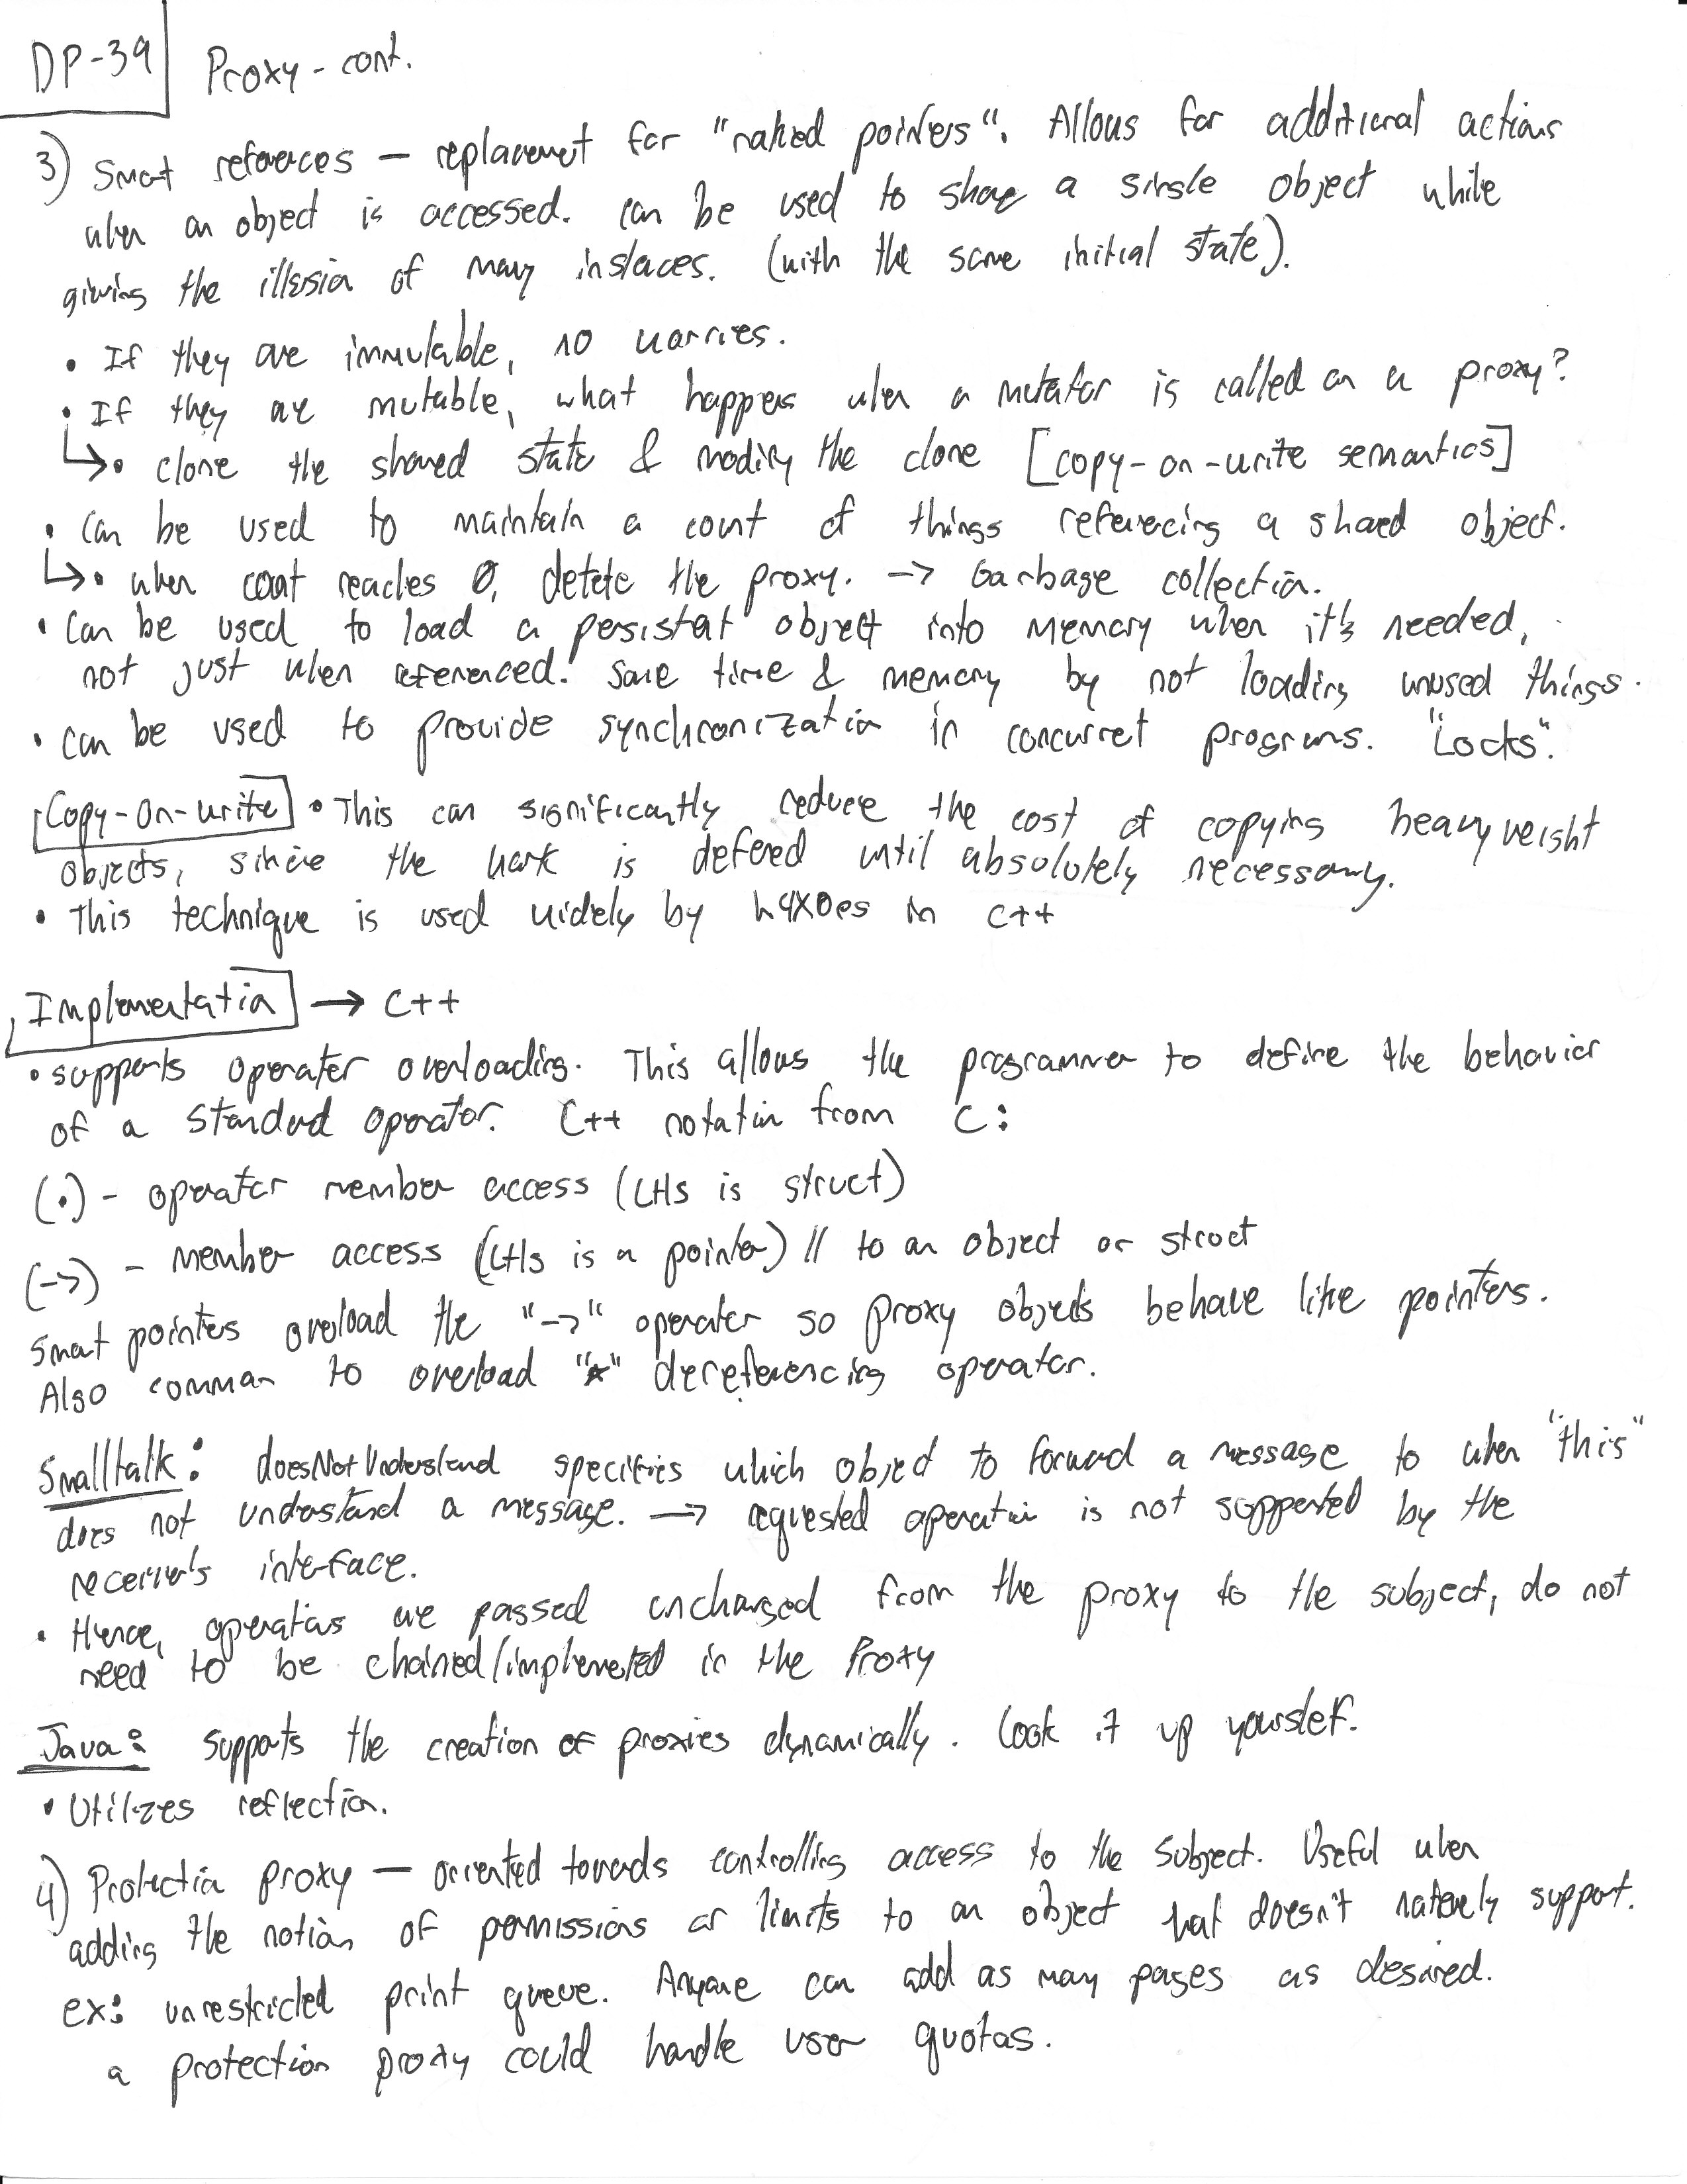 DP-39 Proxy - cont.
3) Smart references — replacement for "naked pointers". Allows for additional actions
when an object is accessed. can be used to share a single object while
giving the illusion of many instances. (with the same initial state).
• If they are immutable, no worries.
• If they are mutable, what happens when a mutator is called on a proxy?
↳• clone the shared state & modify the clone [copy-on-write semantics]
• Can be used to maintain a count of things referencing a shared object.
↳• when count reaches 0, delete the proxy. → Garbage collection.
• Can be used to load a persistent object into memory when it's needed,
not just when referenced. Save time & memory by not loading unused things.
• can be used to provide synchronization in concurrent programs. "Locks".
Copy-on-write • This can significantly reduce the cost of copying heavyweight
objects, since the work is defered until absolutely necessary.
• This technique is used widely by h4x0rs in C++
Implementation → C++
• supports operater overloading. This allows the programmer to define the behavior
of a standard operator. C++ notation from C:
(.) - operator member access (LHS is struct)
(->) - member access (LHS is a pointer) // to an object or struct
Smart pointers overload the "->" operater so proxy objects behave like pointers.
Also common to overload "*" dereferencing operator.
Smalltalk: doesNotUnderstand specifies which object to forward a message to when "this"
does not understand a message. → requested operation is not supported by the
receiver's interface.
• Hence, operations are passed unchanged from the proxy to the subject, do not
need to be chained/implemented in the Proxy
Java: supports the creation of proxies dynamically. Look it up yourslef.
• Utilizes reflection.
4) Protection proxy — oriented towards controlling access to the subject. Useful when
adding the notion of permissions or limits to an object that doesn't natively support.
ex: unrestricted print queue. Anyone can add as many pages as desired.
a protection proxy could handle user quotas.